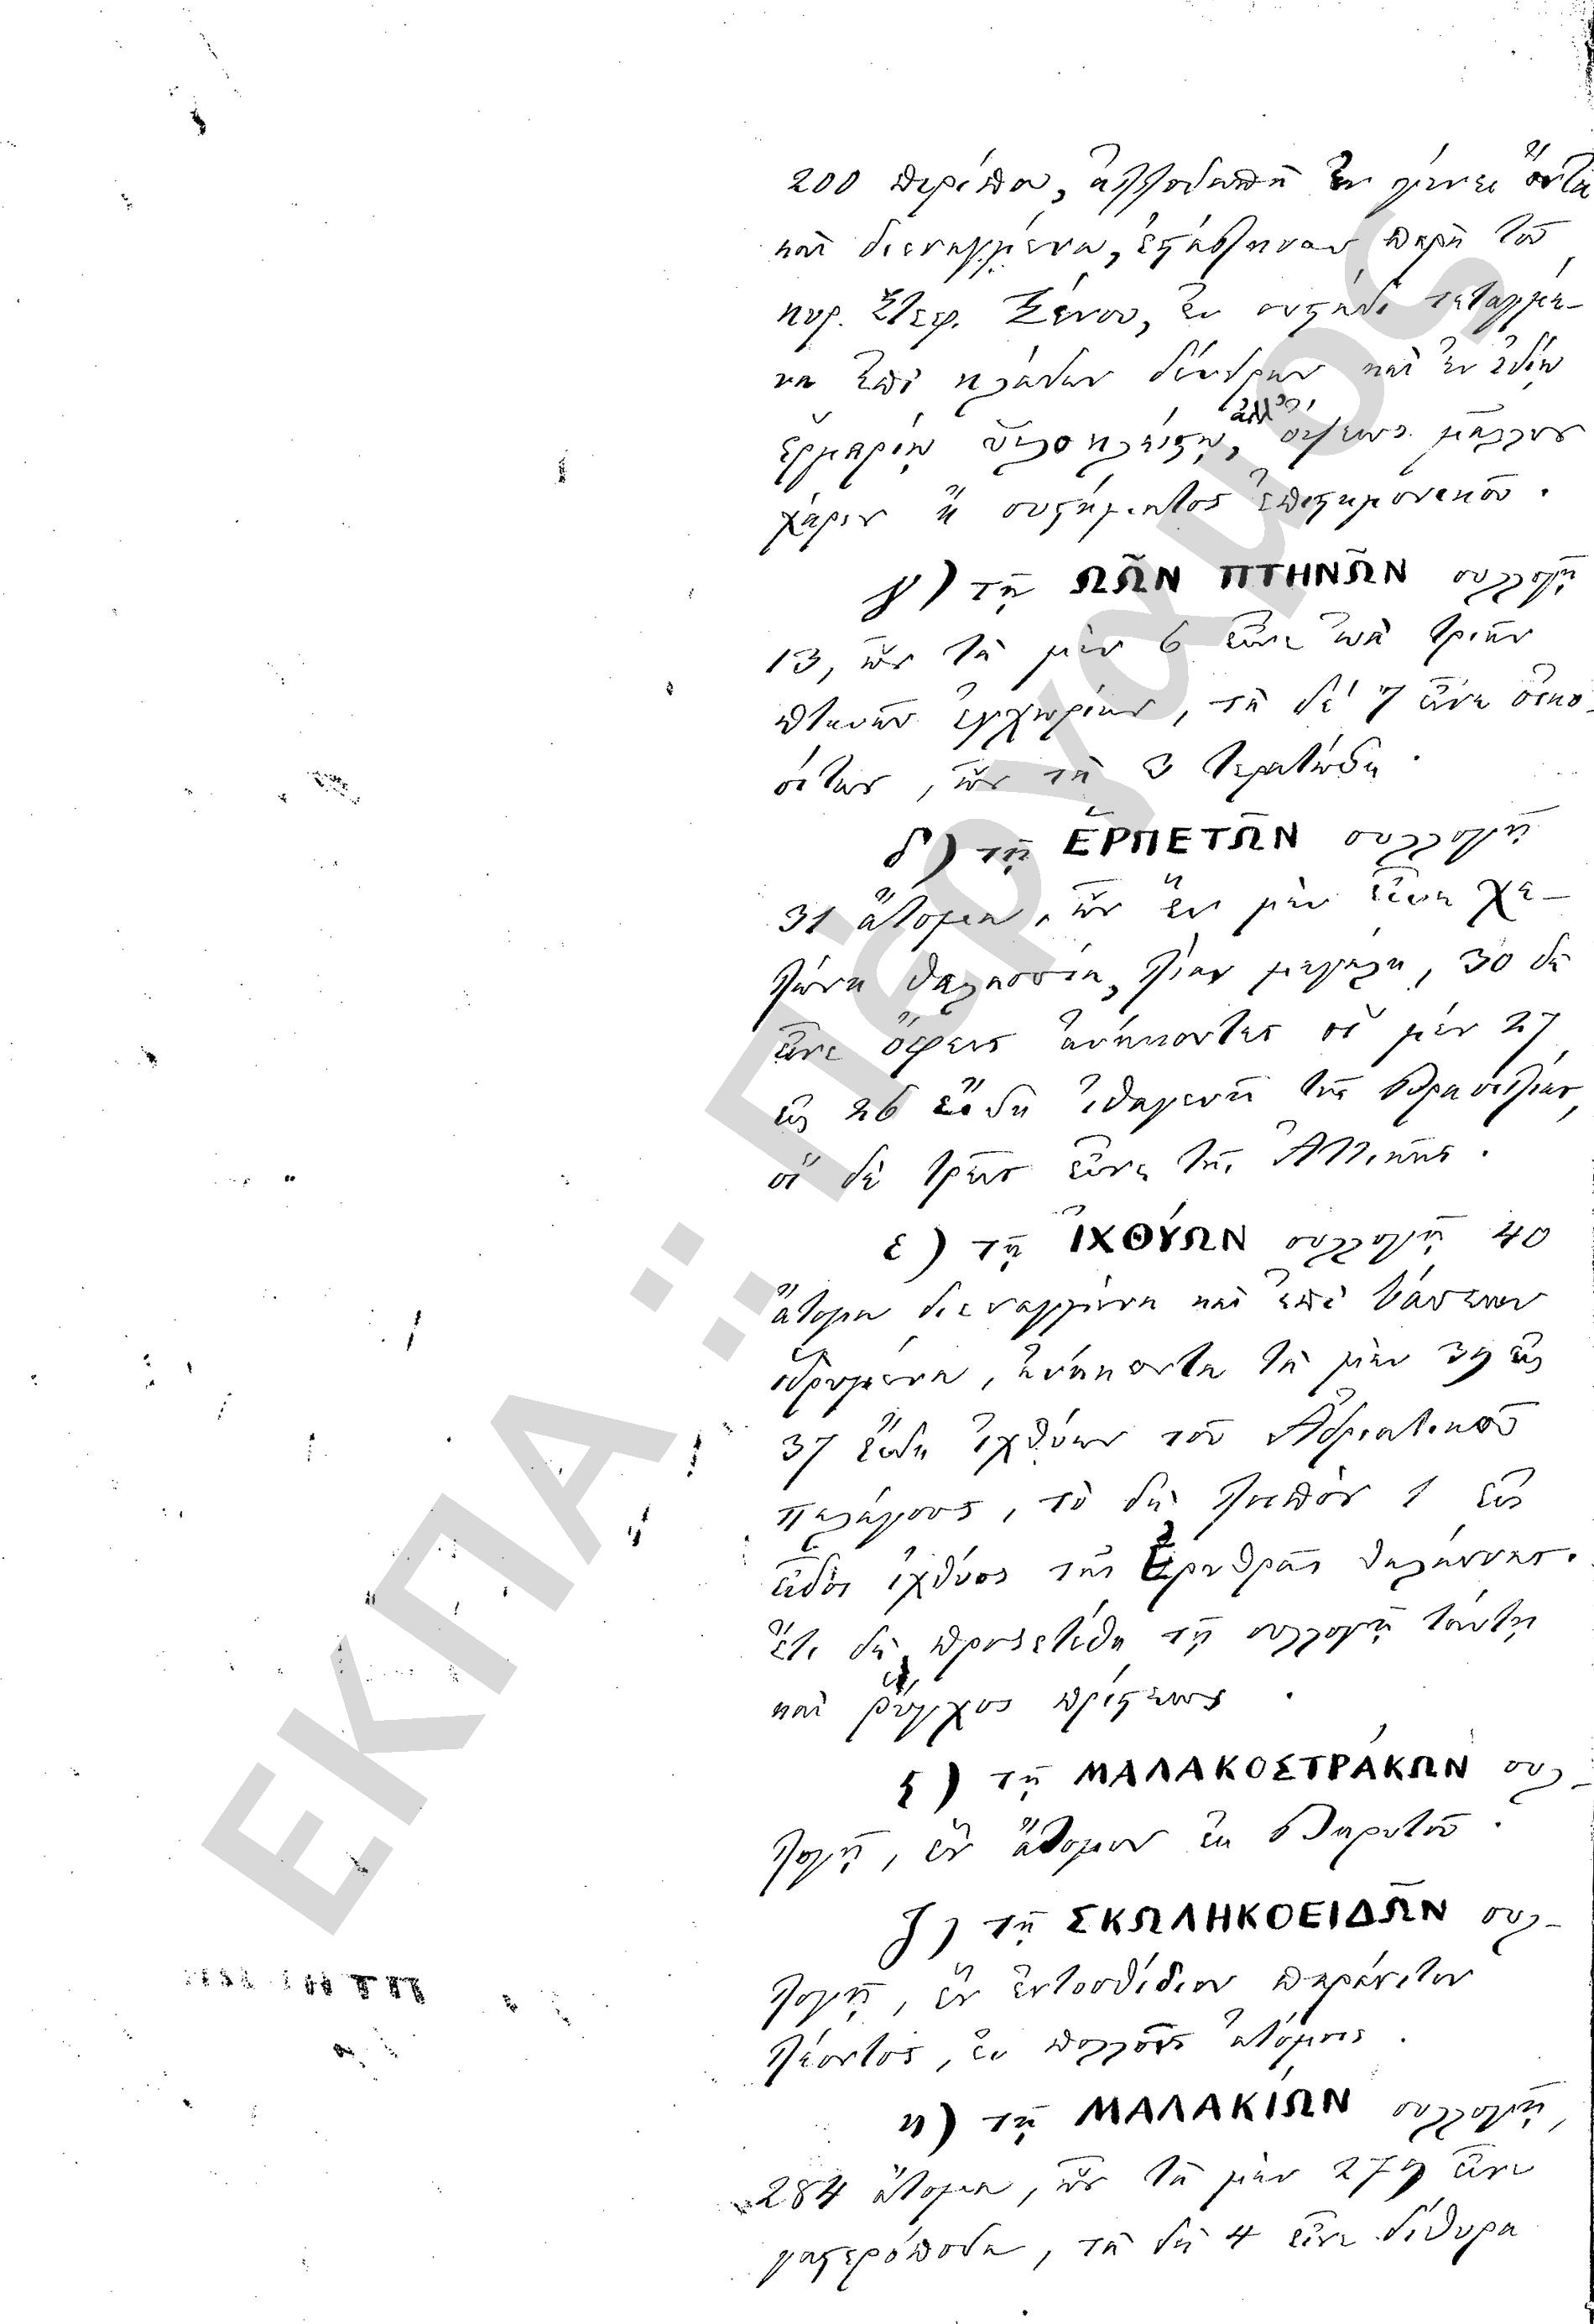 200 περίπου, ἀλλοδαπὰ ἐν γένει ὄντα
καὶ διεναγμένα, ἐστάλησαν παρὰ τοῦ
κυρ. Στεφ. Ξένου, ἐν συστάδι τεταγμέ-
να ἐπὶ κλάδων δένδρων καὶ ἐν ἰδίῳ
ἑρμαρίῳ ὑελοκλείστῳ, ἀλλ' ὄψεως μᾶλλον
χάριν ἢ συστήματος ἐπιστημονικοῦ.
γ) τῇ ΩΩ͂Ν ΠΤΗΝΩ͂Ν συλλογῇ
13, ὧν τὰ μὲν 6 εἶνε ὠὰ τριῶν
πτηνῶν ἐγχωρίων, τὰ δὲ 7 εἶνε ὀικο-
σίτων, ὧν τὰ 3 τερατώδη.
δ) τῇ ἙΡΠΕΤΩ͂Ν συλλογῇ
31 ἄτομα, ὧν ἓν μὲν εἶνε χε-
λώνη θαλασσία, λίαν μεγάλη, 30 δὲ
εἶνε ὄφεις ἀνήκοντες οἱ μὲν 27
εἰς 26 εἴδη ἰθαγενῆ τῆς Βρασιλίας,
οἱ δὲ τρεῖς εἶνε τῆς Ἀττικῆς.
ε) τῇ ἸΧΘΎΩΝ συλλογῇ 40
ἄτομα διεναγμένα καὶ ἐπὶ βάσεων
ἱδρυμένα, ἀνήκοντα τὰ μὲν 39 εἰς
37 εἴδη ἰχθύων τοῦ Ἀδριατικοῦ
πελάγους, τὸ δὲ λοιπὸν 1 εἰς
εἶδος ἰχθύος τῆς Ἐρυθρᾶς θαλάσσης.
Ἔτι δὲ προσετέθη τῇ συλλογῇ ταύτῃ
καὶ ῥύγχος πρίστεως.
ς) τῇ ΜΑΛΑΚΟΣΤΡΆΚΩΝ συλ-
λογῇ, ἓν ἄτομον ἐκ Βηρυτοῦ.
ζ) τῇ ΣΚΩΛΗΚΟΕΙΔΩ͂Ν συλ-
λογῇ, ἓν ἐντοσθίδιον παράσιτον
λέοντος, ἐν πολλοῖς ἀτόμοις.
η) τῇ ΜΑΛΑΚΊΩΝ συλλογῇ,
284 ἄτομα, ὧν τὰ μὲν 279 εἶνε
γαστερόποδα, τὰ δὲ 4 εἶνε δίθυρα
ΕΚΠΑ :: Πέργαμος